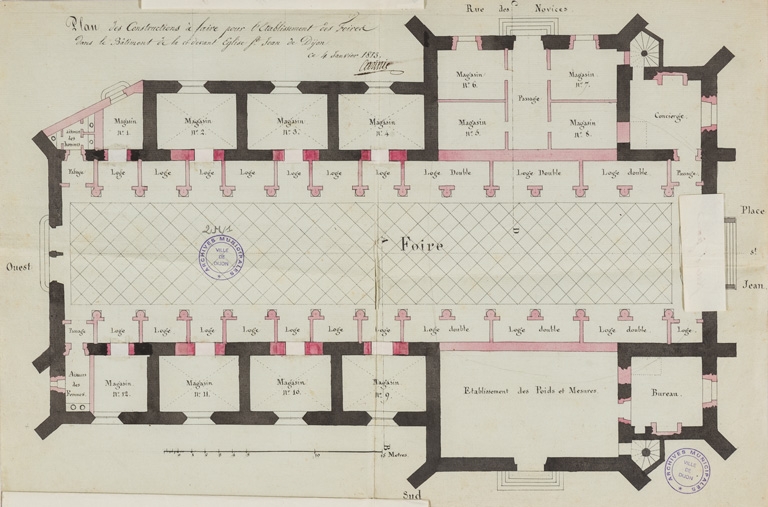 Rue des Novices
Plan des Constructions à faire pour l'Etablissement des Foires
dans le Bâtiment de la ci-devant Eglise St Jean de Dijon
ce 4 Janvier 1813.
Magasin
N° 6.
Passage
Magasin
N° 7.
Magasin
N° 5.
Magasin
N° 8.
Concierge.
Magasin
N° 1.
Magasin
N° 2.
Magasin
N° 3.
Magasin
N° 4.
des
hommes
Loge
Loge
Loge
Loge
Loge
Loge
Loge
Loge Double
Loge Double
Loge double
Passage.
Ouest
Foire
A
D
ARCHIVES MUNICIPALES
VILLE
DE
DIJON
Place
st
Jean.
Passage
Loge
Loge
Loge
Loge
Loge
Loge
Loge
Loge double
Loge double
Loge double
Loge.
des
Femmes
Magasin
N° 12.
Magasin
N° 11.
Magasin
N° 10.
Magasin
N° 9.
Etablissement des Poids et Mesures.
Bureau.
B
15 Metres.
ARCHIVES MUNICIPALES
VILLE
DE
DIJON
Sud